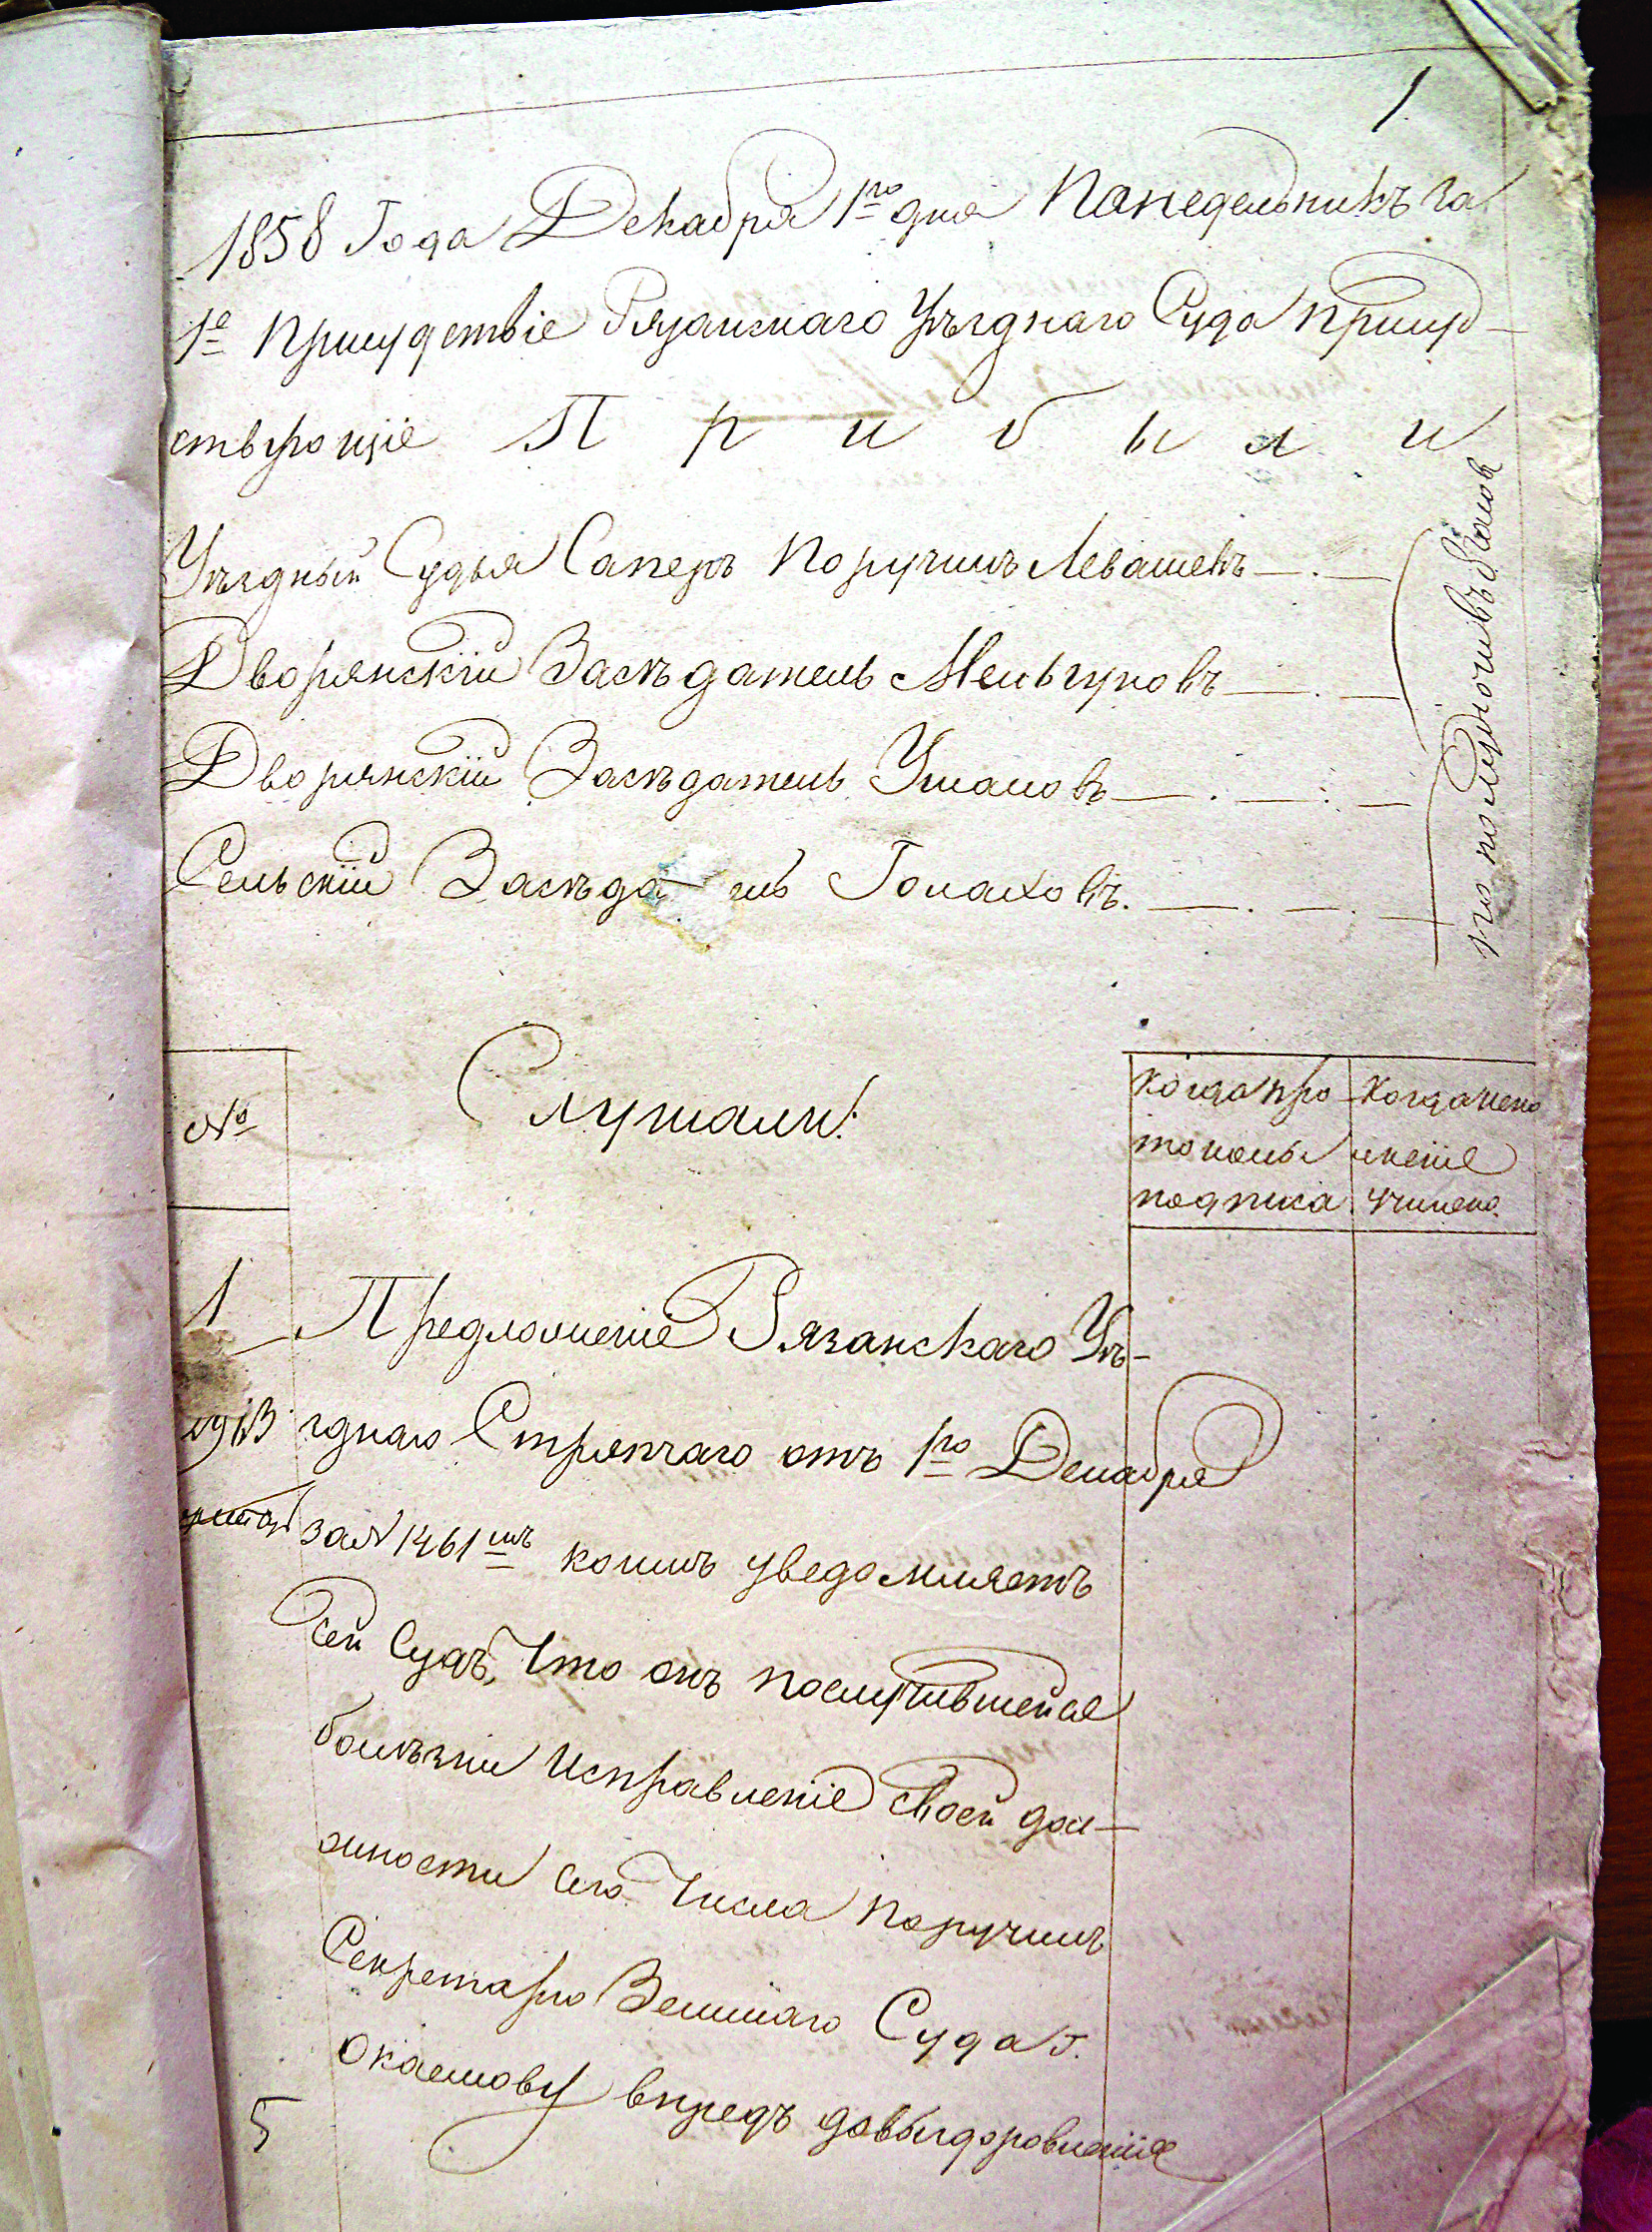 1.
1858 Года Декабря 1го дня Понедельникъ въ
1е Присудствіе Рязанскаго Уѣзднаго Суда присуд-
ствующіе Прибыли
Уѣздный Судья Саперъ Поручикъ Левашевъ
Дворянскій Засѣдатель Мельгуновъ
Дворянскій Засѣдатель Ушаковъ
Сельскій Засѣда ль
по полуночи въ часов
№
Слушали:
когда про
токолы
подписа
когда испо
лненіе
учинено.
1
Предложеніе Рязанскаго Уѣ-
зднаго Стряпчаго отъ 1го Декабря
за № 1461мъ коимъ уведомляетъ
сей Судъ, Что онъ послучившейся
болѣзни Исправленіе своей дол-
жности сего Числа поручилъ
Секретарю Земскаго Суда г.
впредъ довыздоровленія
5